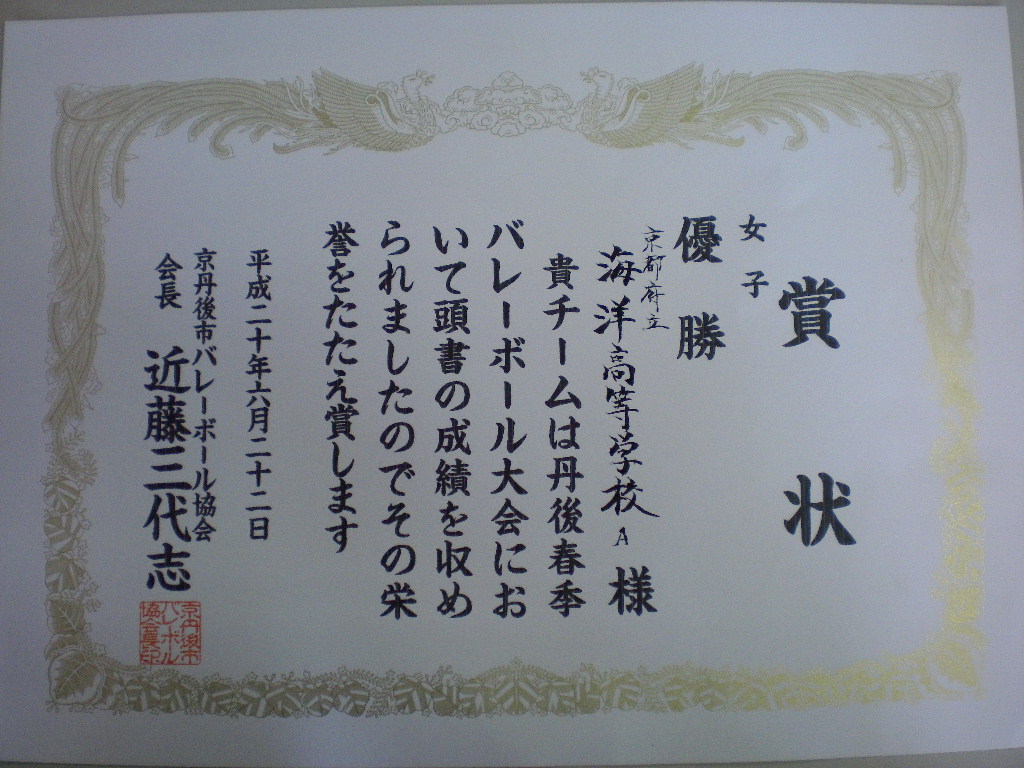 賞状
女子
優勝
京都府立
海洋高等学校A 様
貴チームは丹後春季
バレーボール大会にお
いて頭書の成績を収め
られましたのでその栄
誉をたたえ賞します
平成二十年六月二十二日
京丹後市バレーボール協会
会長 近藤三代志
京丹後市
バレーボル
協会長印